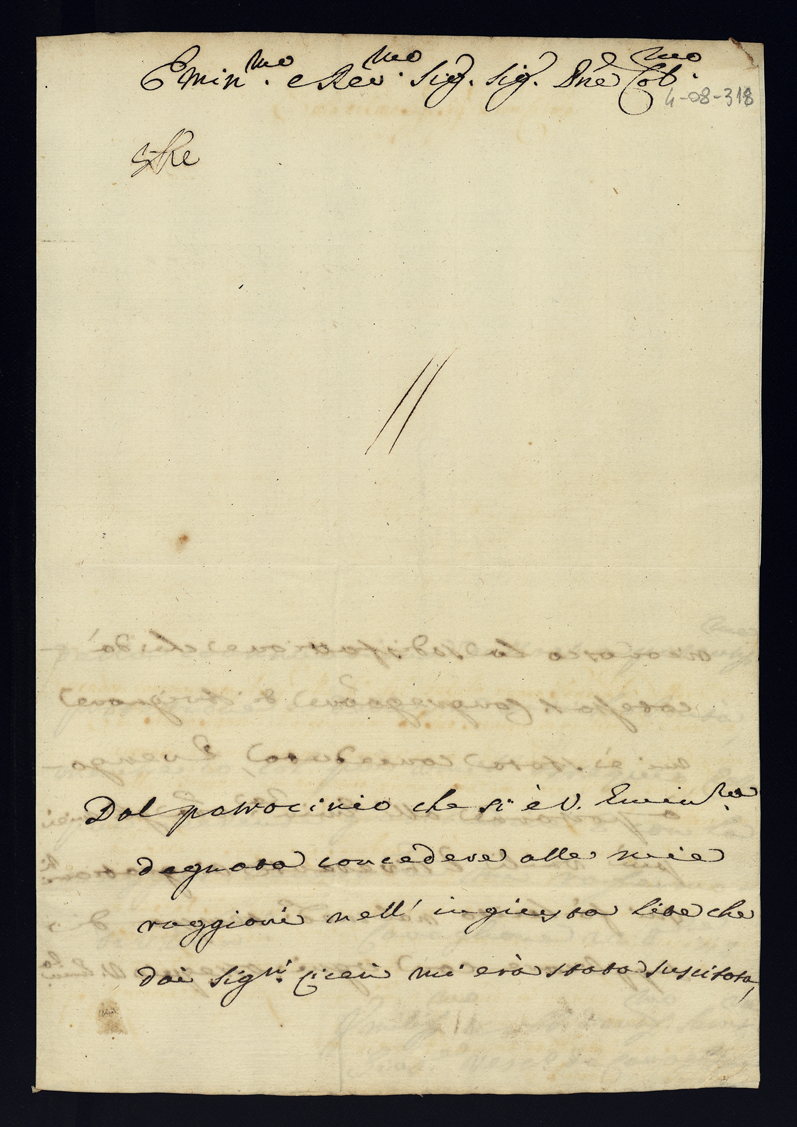 Emin.mo e Rev.mo Sig. Sig. Pne Col.mo
4-08-318
Dal patrocinio che si è V. Emin.za
degnata concedere alle mie
raggioni nell' ingiusta lite che
dai Sig.ri mi era stata suscitata,